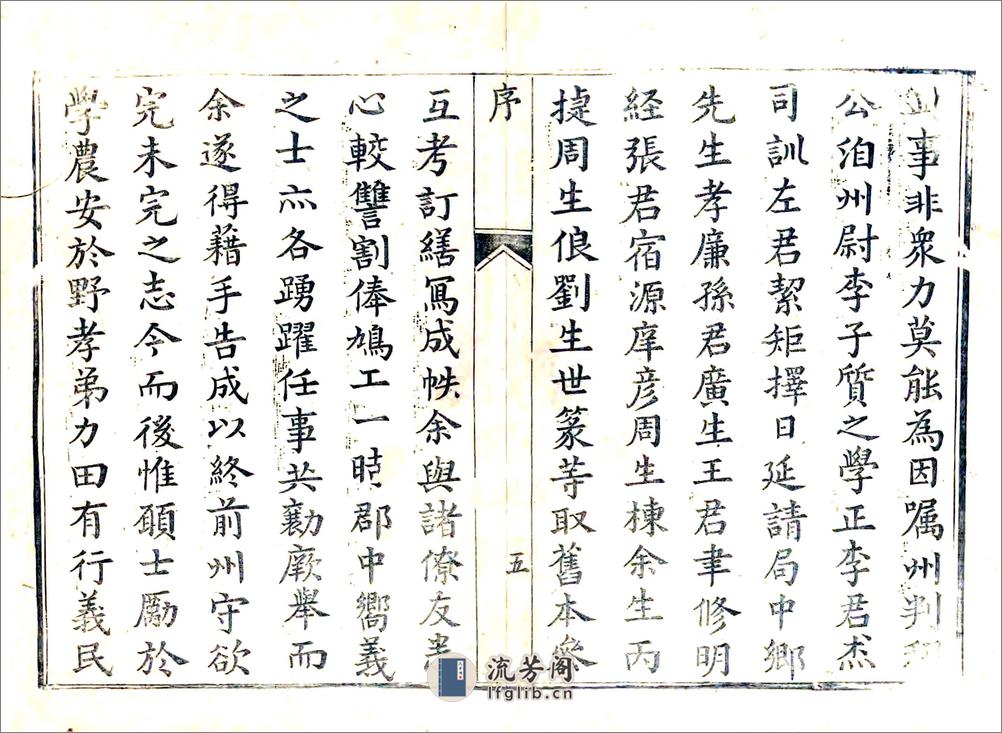 事非衆力莫能為因嘱州判
公洎州尉李子質之學正李君杰
司訓左君絜矩擇日延請局中鄉
先生孝廉孫君廣生王君聿修明
経張君宿源庠彦周生棟余生丙
㨗周生俍劉生世篆䒭取舊本叅
序
五
互考訂繕冩成帙余與諸僚友悉
心較讐割俸鳩工一時郡中嚮義
之士亦各踴躍任事共勷厥舉而
余遂得藉手告成以終前州守欲
完未完之志今而後惟願士勵於
學農安於野孝弟力田有行義民
流芳阁
lfglib.cn